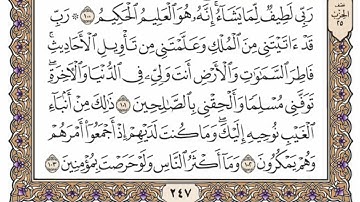 رَبِّي لَطِيفٌ لِّمَا يَشَآءُۚ إِنَّهُۥ هُوَ ٱلْعَلِيمُ ٱلْحَكِيمُ ١٠٠ ۞ رَبِّ
قَدْ ءَاتَيْتَنِي مِنَ ٱلْمُلْكِ وَعَلَّمْتَنِي مِن تَأْوِيلِ ٱلْأَحَادِيثِۚ
فَاطِرَ ٱلسَّمَٰوَٰتِ وَٱلْأَرْضِ أَنتَ وَلِيِّۦ فِي ٱلدُّنْيَا وَٱلْأٓخِرَةِۖ
تَوَفَّنِي مُسْلِمًا وَأَلْحِقْنِي بِٱلصَّٰلِحِينَ ١٠١ ذَٰلِكَ مِنْ أَنۢبَآءِ
ٱلْغَيْبِ نُوحِيهِ إِلَيْكَۖ وَمَا كُنتَ لَدَيْهِمْ إِذْ أَجْمَعُوٓا۟ أَمْرَهُمْ
وَهُمْ يَمْكُرُونَ ١٠٢ وَمَآ أَكْثَرُ ٱلنَّاسِ وَلَوْ حَرَصْتَ بِمُؤْمِنِينَ ١٠٣
نصف
الحزب
٢٥
٢٤٧